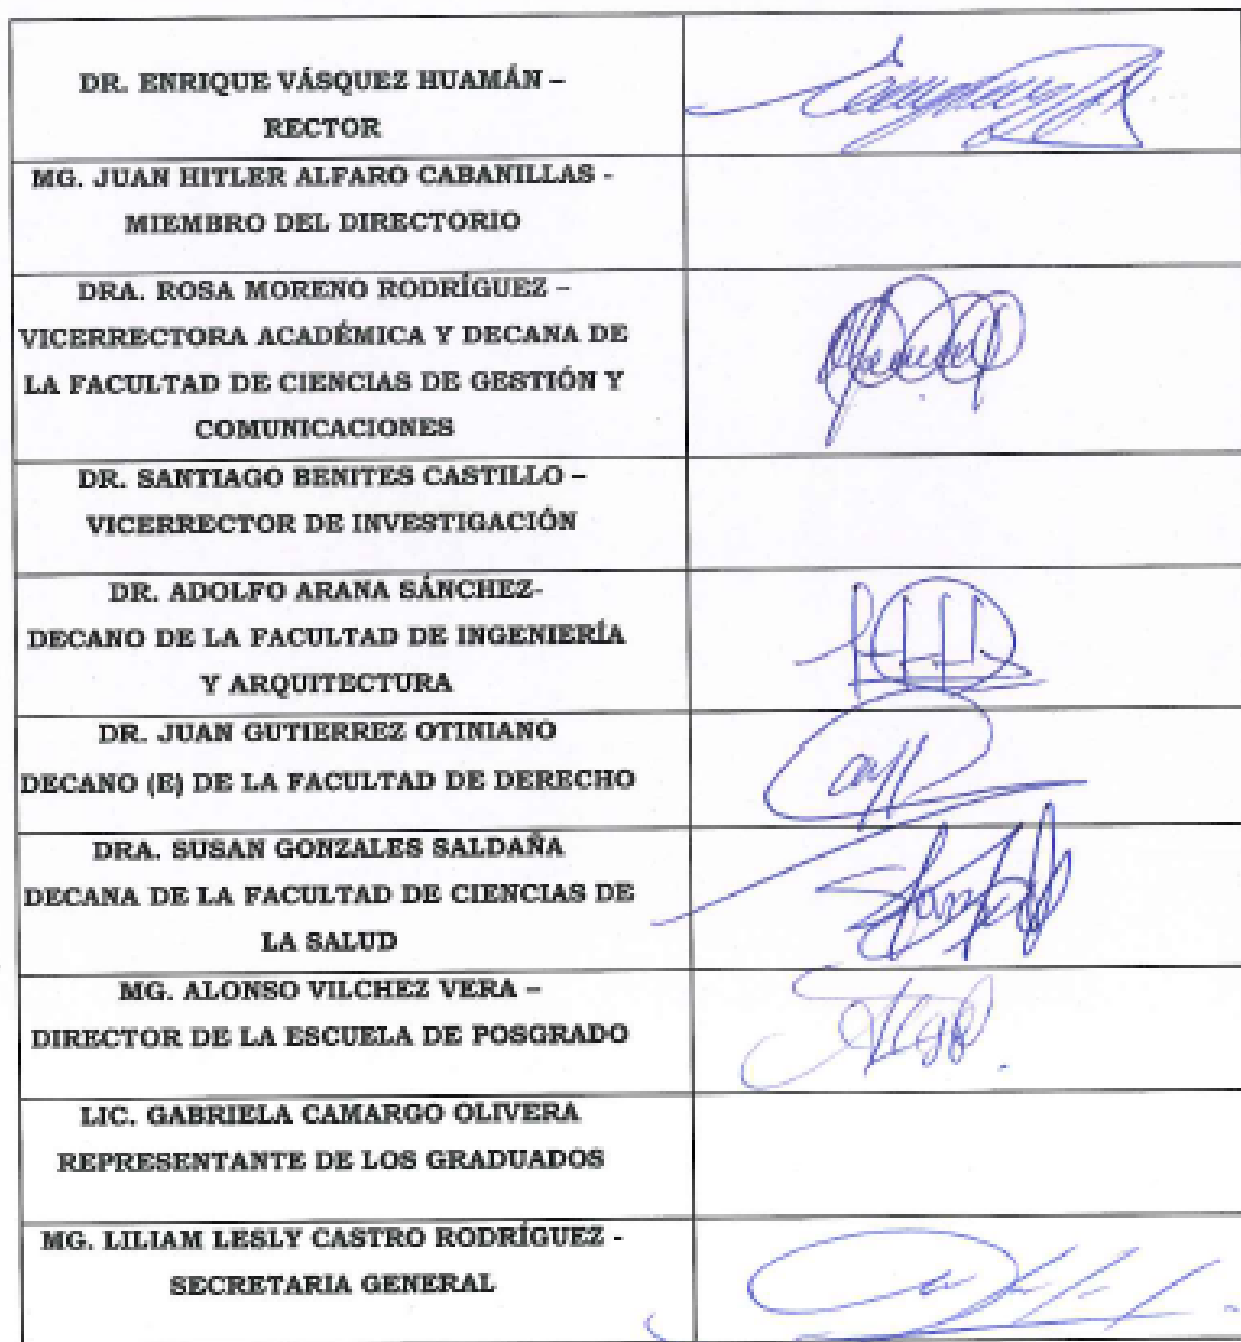 DR. ENRIQUE VÁSQUEZ HUAMÁN –
RECTOR
MG. JUAN HITLER ALFARO CABANILLAS -
MIEMBRO DEL DIRECTORIO
DRA. ROSA MORENO RODRÍGUEZ –
VICERRECTORA ACADÉMICA Y DECANA DE
LA FACULTAD DE CIENCIAS DE GESTIÓN Y
COMUNICACIONES
DR. SANTIAGO BENITES CASTILLO –
VICERRECTOR DE INVESTIGACIÓN
DR. ADOLFO ARANA SÁNCHEZ-
DECANO DE LA FACULTAD DE INGENIERÍA
Y ARQUITECTURA
DR. JUAN GUTIERREZ OTINIANO
DECANO (E) DE LA FACULTAD DE DERECHO
DRA. SUSAN GONZALES SALDAÑA
DECANA DE LA FACULTAD DE CIENCIAS DE
LA SALUD
MG. ALONSO VILCHEZ VERA –
DIRECTOR DE LA ESCUELA DE POSGRADO
LIC. GABRIELA CAMARGO OLIVERA
REPRESENTANTE DE LOS GRADUADOS
MG. LILIAM LESLY CASTRO RODRÍGUEZ -
SECRETARIA GENERAL